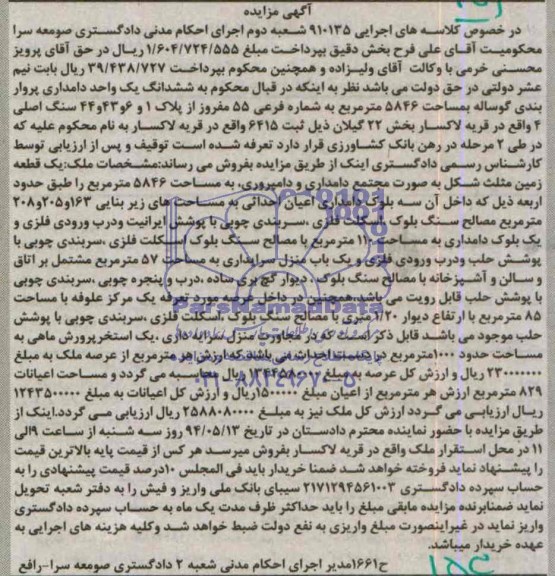 آگهی مزایده
در خصوص کلاسه های اجرایی ۹۱۰۱۳۵ شعبه دوم اجرای احکام مدنی دادگستری صومعه سرا
محکومیت آقای علی فرح بخش دقیق بپرداخت مبلغ ۱/۶۰۴/۷۲۴/۵۵۵ ریال در حق آقای پرویز
محسنی خرمی با وکالت آقای ولیزاده و همچنین محکوم بپرداخت ۳۹/۴۳۸/۷۲۷ ریال بابت نیم
عشر دولتی در حق دولت می باشد نظر به اینکه در قبال محکوم به ششدانگ یک واحد دامداری پروار
بندی گوساله بمساحت ۵۸۴۶ مترمربع به شماره فرعی ۵۵ مفروز از پلاک ۱ و ۶و۴۳و۴۴ سنگ اصلی
۴ واقع در قریه لاکسار بخش ۲۲ گیلان ذیل ثبت ۶۴۱۵ واقع در قریه لاکسار به نام محکوم علیه که
در طی ۲ مرحله در رهن بانک کشاورزی قرار دارد تعرفه شده است توقیف و پس از ارزیابی توسط
کارشناس رسمی دادگستری اینک از طریق مزایده بفروش می رساند:مشخصات ملک:یک قطعه
زمین مثلث شکل به صورت مجتمع دامداری و دامپروری، به مساحت ۵۸۴۶ مترمربع را طبق حدود
اربعه ذیل که داخل آن سه بلوک دامداری اعیان احداثی به مساحت های زیر بنایی ۱۶۳و۲۰۵و۲۰۸
مترمربع مصالح سنگ بلوک ،اسکلت فلزی ،سربندی چوبی با پوشش ایرانیت ودرب ورودی فلزی و
یک بلوک دامداری به مساحت ۱۱۰ مترمربع با مصالح سنگ بلوک ،اسکلت فلزی ،سربندی چوبی با
پوشش حلب ودرب ورودی فلزی و یک باب منزل سرایداری به مساحت ۵۷ مترمربع مشتمل بر اتاق
و سالن و آشپزخانه با مصالح سنگ بلوک ، دیوار گچ بری ساده ،درب و پنجره چوبی ،سربندی چوبی
با پوشش حلب قابل رویت می باشد،همچنین در داخل عرصه مورد تعرفه یک مرکز علوفه با مساحت
۸۵ مترمربع با ارتفاع دیوار ۱/۲۰ متری با مصالح سنگ بلوک ،اسکلت فلزی ،سربندی چوبی با پوشش
حلب موجود می باشد. قابل ذکر است که در مجاورت منزل سرایداری ،یک استخر پرورش ماهی به
مساحت حدود ۱۰۰۰مترمربع در دست احداث می باشد که ارزش هر مترمربع از عرصه ملک به مبلغ
۲۳۰۰۰۰۰ ریال و ارزش کل عرصه به مبلغ ۱۳۴۴۵۸۰۰۰۰۰ ریال محاسبه می گردد و مساحت اعیانات
۸۲۹ مترمربع ارزش هر مترمربع از اعیان مبلغ ۱۵۰۰۰۰۰ریال و ارزش کل اعیانات به مبلغ ۱۲۴۳۵۰۰۰۰۰
ریال ارزیابی می گردد ارزش کل ملک نیز به مبلغ ۲۵۸۸۰۸۰۰۰۰ ریال ارزیابی می گردد.اینک از
طریق مزایده با حضور نماینده محترم دادستان در تاریخ ۹۴/۰۵/۱۳ روز سه شنبه از ساعت ۹الی
۱۱ در محل استقرار ملک واقع در قریه لاکسار بفروش میرسد هر کس از قیمت پایه بالاترین قیمت
را پیشنهاد نماید فروخته خواهد شد ضمنا خریدار باید فی المجلس ۱۰درصد قیمت پیشنهادی را به
حساب سپرده دادگستری ۲۱۷۱۲۹۴۵۶۱۰۰۳ سیبای بانک ملی واریز و فیش را به دفتر شعبه تحویل
نماید ضمنابرنده مزایده مابقی مبلغ را باید حداکثر ظرف مدت یک ماه به حساب سپرده دادگستری
واریز نماید در غیراینصورت مبلغ واریزی به نفع دولت ضبط خواهد شد وکلیه هزینه های اجرایی به
عهده خریدار میباشد.
ح۱۶۶۱مدیر اجرای احکام مدنی شعبه ۲ دادگستری صومعه سرا-رافع
ParsNamadData
۰۲۱-۸۸۳۴۹۶۷۰-۵